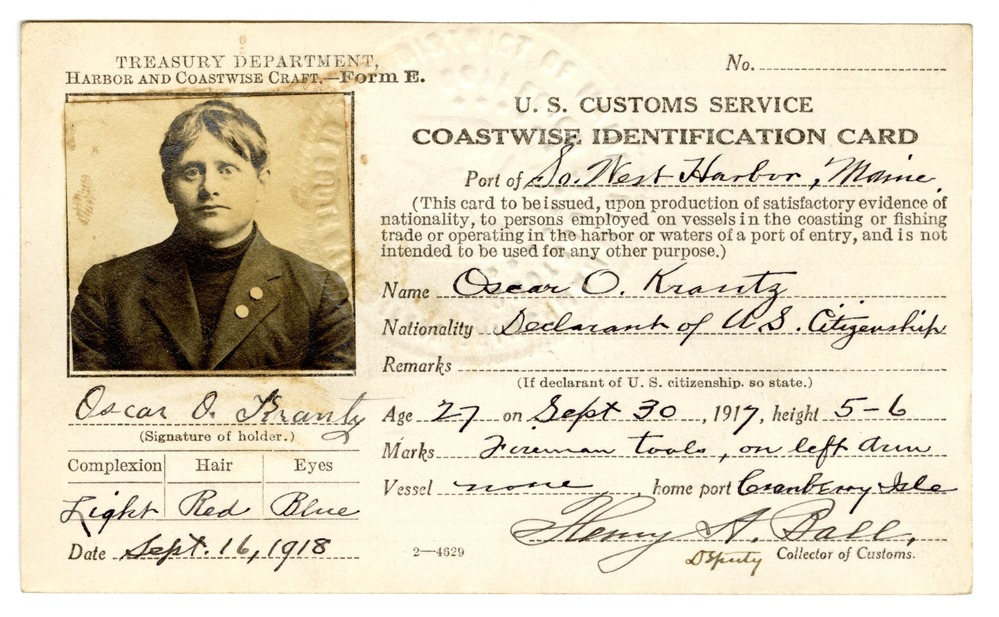 TREASURY DEPARTMENT,
HARBOR AND COASTWISE CRAFT.—FORM E.
No.
U. S. CUSTOMS SERVICE
COASTWISE IDENTIFICATION CARD
Port of So. West Harbor, Maine.
(This card to be issued, upon production of satisfactory evidence of
nationality, to persons employed on vessels in the coasting or fishing
trade or operating in the harbor or waters of a port of entry, and is not
intended to be used for any other purpose.)
Name Oscar O. Krantz
Nationality Declarant of U.S. Citizenship
Remarks
(If declarant of U. S. citizenship, so state.)
Age 27 on Sept 30, 1917, height 5-6
Marks Fireman tools, on left arm
Vessel none, home port Cranberry Isle
Henry A. Ball,
Deputy Collector of Customs.
Oscar O. Krantz
(Signature of holder.)
Complexion Hair Eyes
Light Red Blue
Date Sept. 16, 1918
2—4629